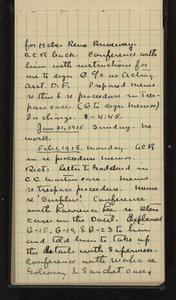 for Heber Reno Runaway.
ACR back. Conference with
him with instructions for
me to sign O.G's as Acting
Asst. D.F. Prepared memo
re this & re procedure in tres-
pass case (G to sign memos)
In charge. 8-4:45.
Jan 31, 1915 Sunday. No
work.
Feb. 1, 1915. Monday. ACR
in re procedure memos.
Riet; letter to Goddard in
CC matter case. Memo
re trespass procedure. Memo
re "Surplus". Conference
with Lawrence re when
cases in the Datil. Explained
B-15, G-19 & B-23 to him
and told him to take up
the details with Supervisor.
Conference with
& Sanchez case,